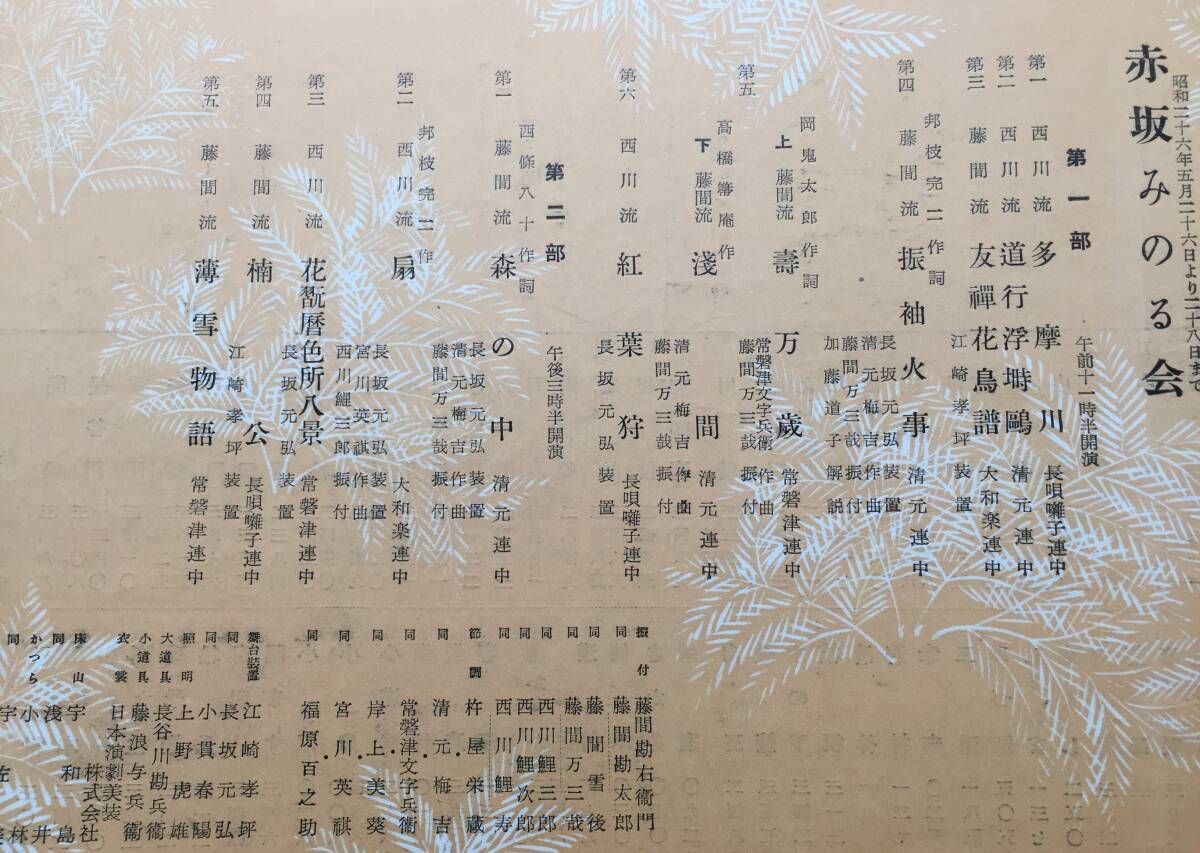 昭和二十六年五月二十六日より二十八日まで
赤坂みのる会
第一部 午前十一時半開演
第一 西川流 多摩川 長唄囃子連中
第二 西川流 道行浮塒鷗 清元連中
第三 藤間流 友禪花鳥譜 大和楽連中
江崎孝坪装置
邦枝完二作詞
第四 藤間流 振袖火事 清元連中
長坂元弘装置
清元梅吉作曲
藤間万三哉振付
加藤道子解説
岡鬼太郎作詞
第五 上 藤間流 壽万歳 常磐津連中
常磐津文字兵衛作曲
藤間万三哉振付
高橋箒庵作
下 藤間流 淺間 清元連中
清元梅吉作曲
藤間万三哉振付
第六 西川流 紅葉狩 長唄囃子連中
長坂元弘装置
第二部 午後三時半開演
西條八十作詞
第一 藤間流 森の中 清元連中
長坂元弘装置
清元梅吉作曲
藤間万三哉振付
邦枝完二作
第二 西川流 扇 大和楽連中
長坂元弘装置
宮川英祺作曲
西川鯉三郎振付
第三 西川流 花翫暦色所八景 常磐津連中
長坂元弘装置
第四 藤間流 楠公 長唄囃子連中
江崎孝坪装置
第五 藤間流 薄雪物語 常磐津連中
振付 藤間勘右衞門
同 藤間勘太郎
同 藤間雪後
同 藤間万三哉
同 西川鯉三郎
同 西川鯉次郎
同 西川鯉寿
節調 杵屋栄蔵
同 清元梅吉
同 常磐津文字兵衛
同 岸上美葵
同 宮川英祺
同 福原百之助
舞台装置 江崎孝坪
同 長坂元弘
同 小貫春陽
照明 上野虎雄
大道具 長谷川勘兵衞
小道具 藤浪与兵衞
衣裳 日本演劇美装株式会社
床山 宇和島
同 浅井
かつら 小林
同 宇佐